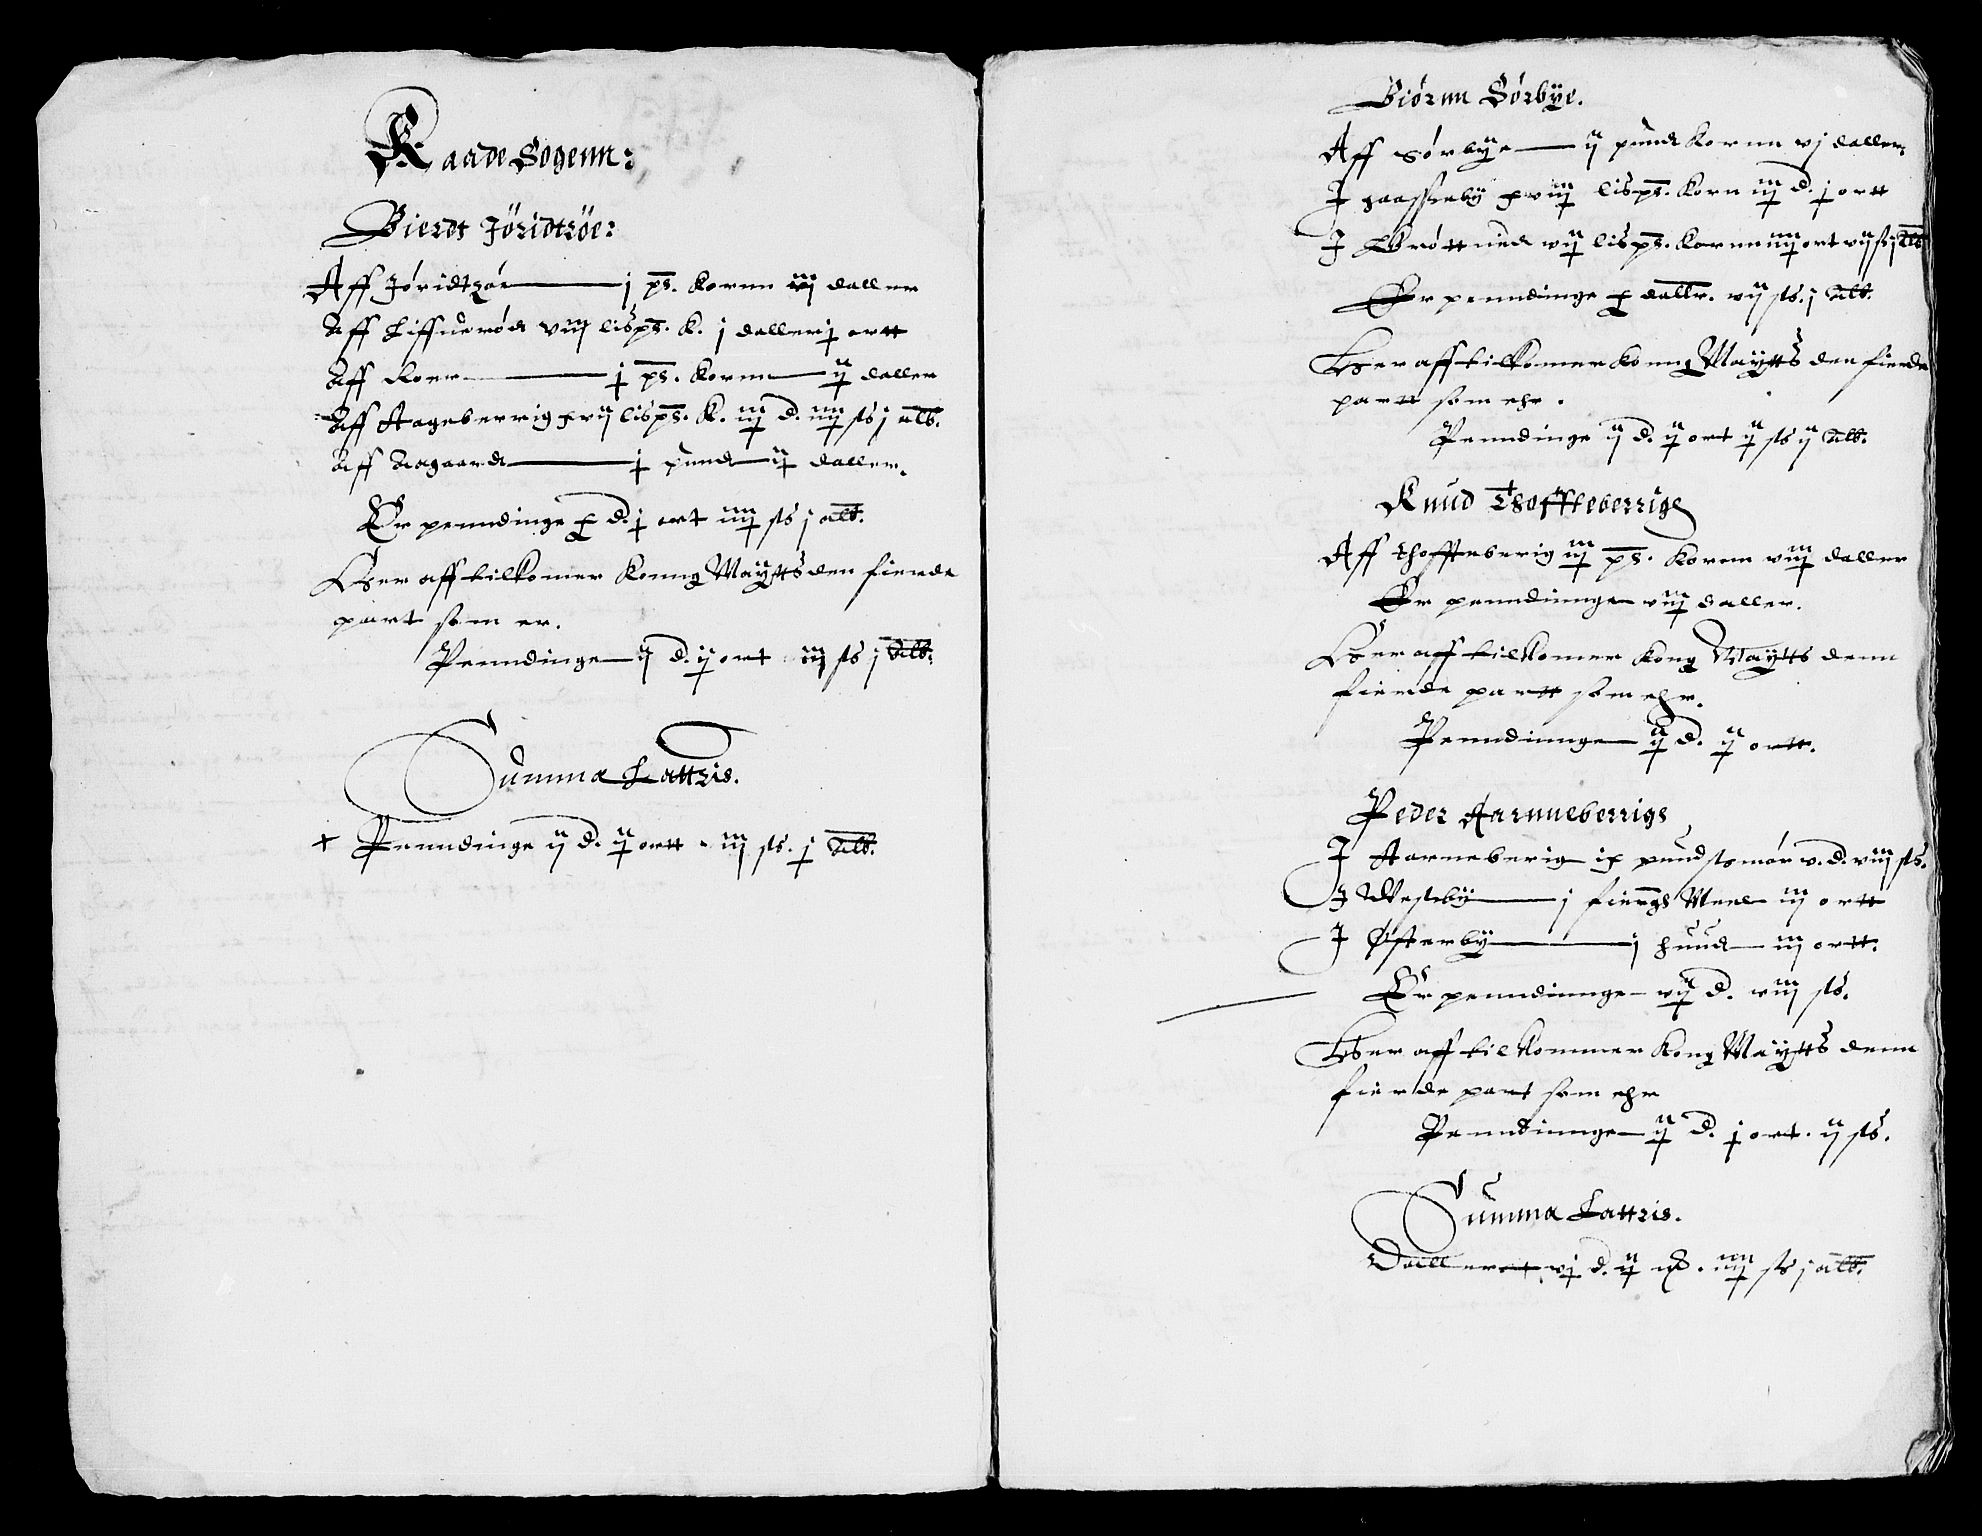 Raade Sogenn:
Gierdt Jöridtröe:
Aff Jöridtröe j pd. Kornn iij daller
Aff Liffuerød viij lispd. K. j daller j ortt
Aff Roer j pd. Kornn ij daller
Aff Aageberrig xvij lispd. K. iij d. iiij ß j alb.
Aff Aagaard j pund ij daller.
Er penndinge x d. j ort iiij ß j alb.
Her aff tilkomer Konng Maÿtts den fierde
part som er.
Penndinge ij d. ij ort iij ß j alb.
Summa Lattris.
Penndinge ij d. ij ortt iij ß. j alb.
Biörnn Sörbÿe.
Aff Sørbÿe ij pund Kornn vj daller.
J haasseby xviij lispd. Korn iij d. j ortt
J Grøttued vij lispd. Kornn iiij ort vij ß j alb
Er penndinge x dallr. vij ß. j alb.
Her aff tilkomer Konng Maÿtts den fierde
partt som ehr.
Penndinge ij d. ij ort ij ß ij alb.
Knud Thoffteberrig
Aff Thoffteberig iiij pd. Kornn viij daller
Er penndinnge viij daller.
Her aff tilkomer Kong Maÿtts denn
fierde partt som ehr.
Penndinnge ij d. ij ortt.
Peder Aarnneberrigs
J Aarneberig ix pund smør v. d. viij ß.
J Westby j fierngs Meel iij ortt
J Østerbÿ j huud iij ortt.
Er penndinnge vij d. viij ß.
Her aff tilkommer Kong Maÿtts denn
fierde part som ehr
Penndinnge ij d. j ort. ij ß.
Summa Lattris.
Daller vj d. ij . iiij ß j alb.